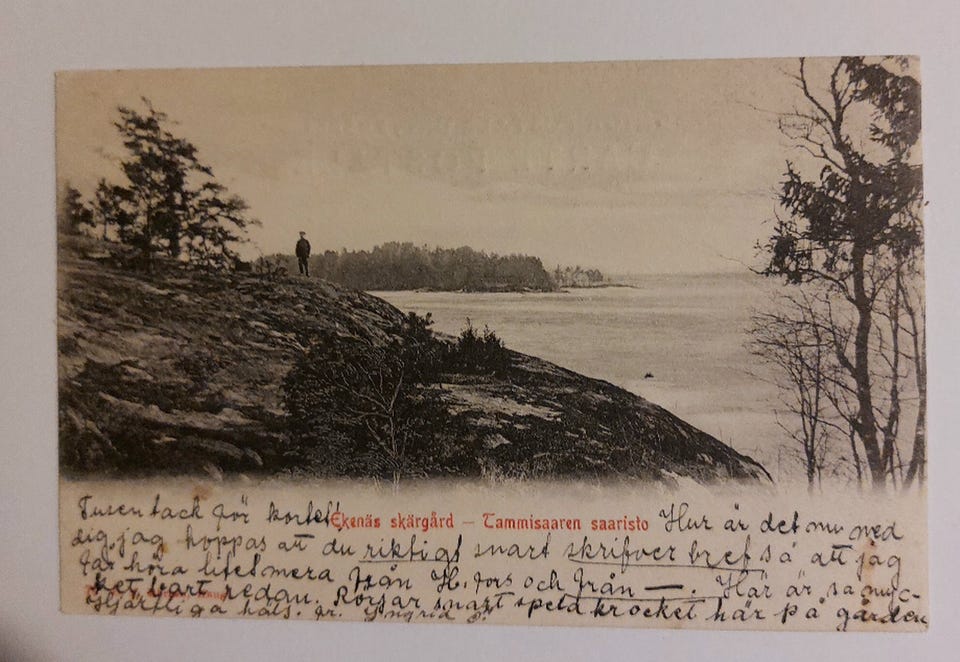 Tusen tack för kortet! Ekenäs skärgård — Tammisaaren saaristo Hur är det nu med
dig, jag hoppas att du riktigt snart skrifver bref så att jag
får höra litet mera från H.fors och från —. Här är så myc-
ket bart redan. Rörsar snart spela krocket här på gården
Hjärtliga häls. fr. Ingrid